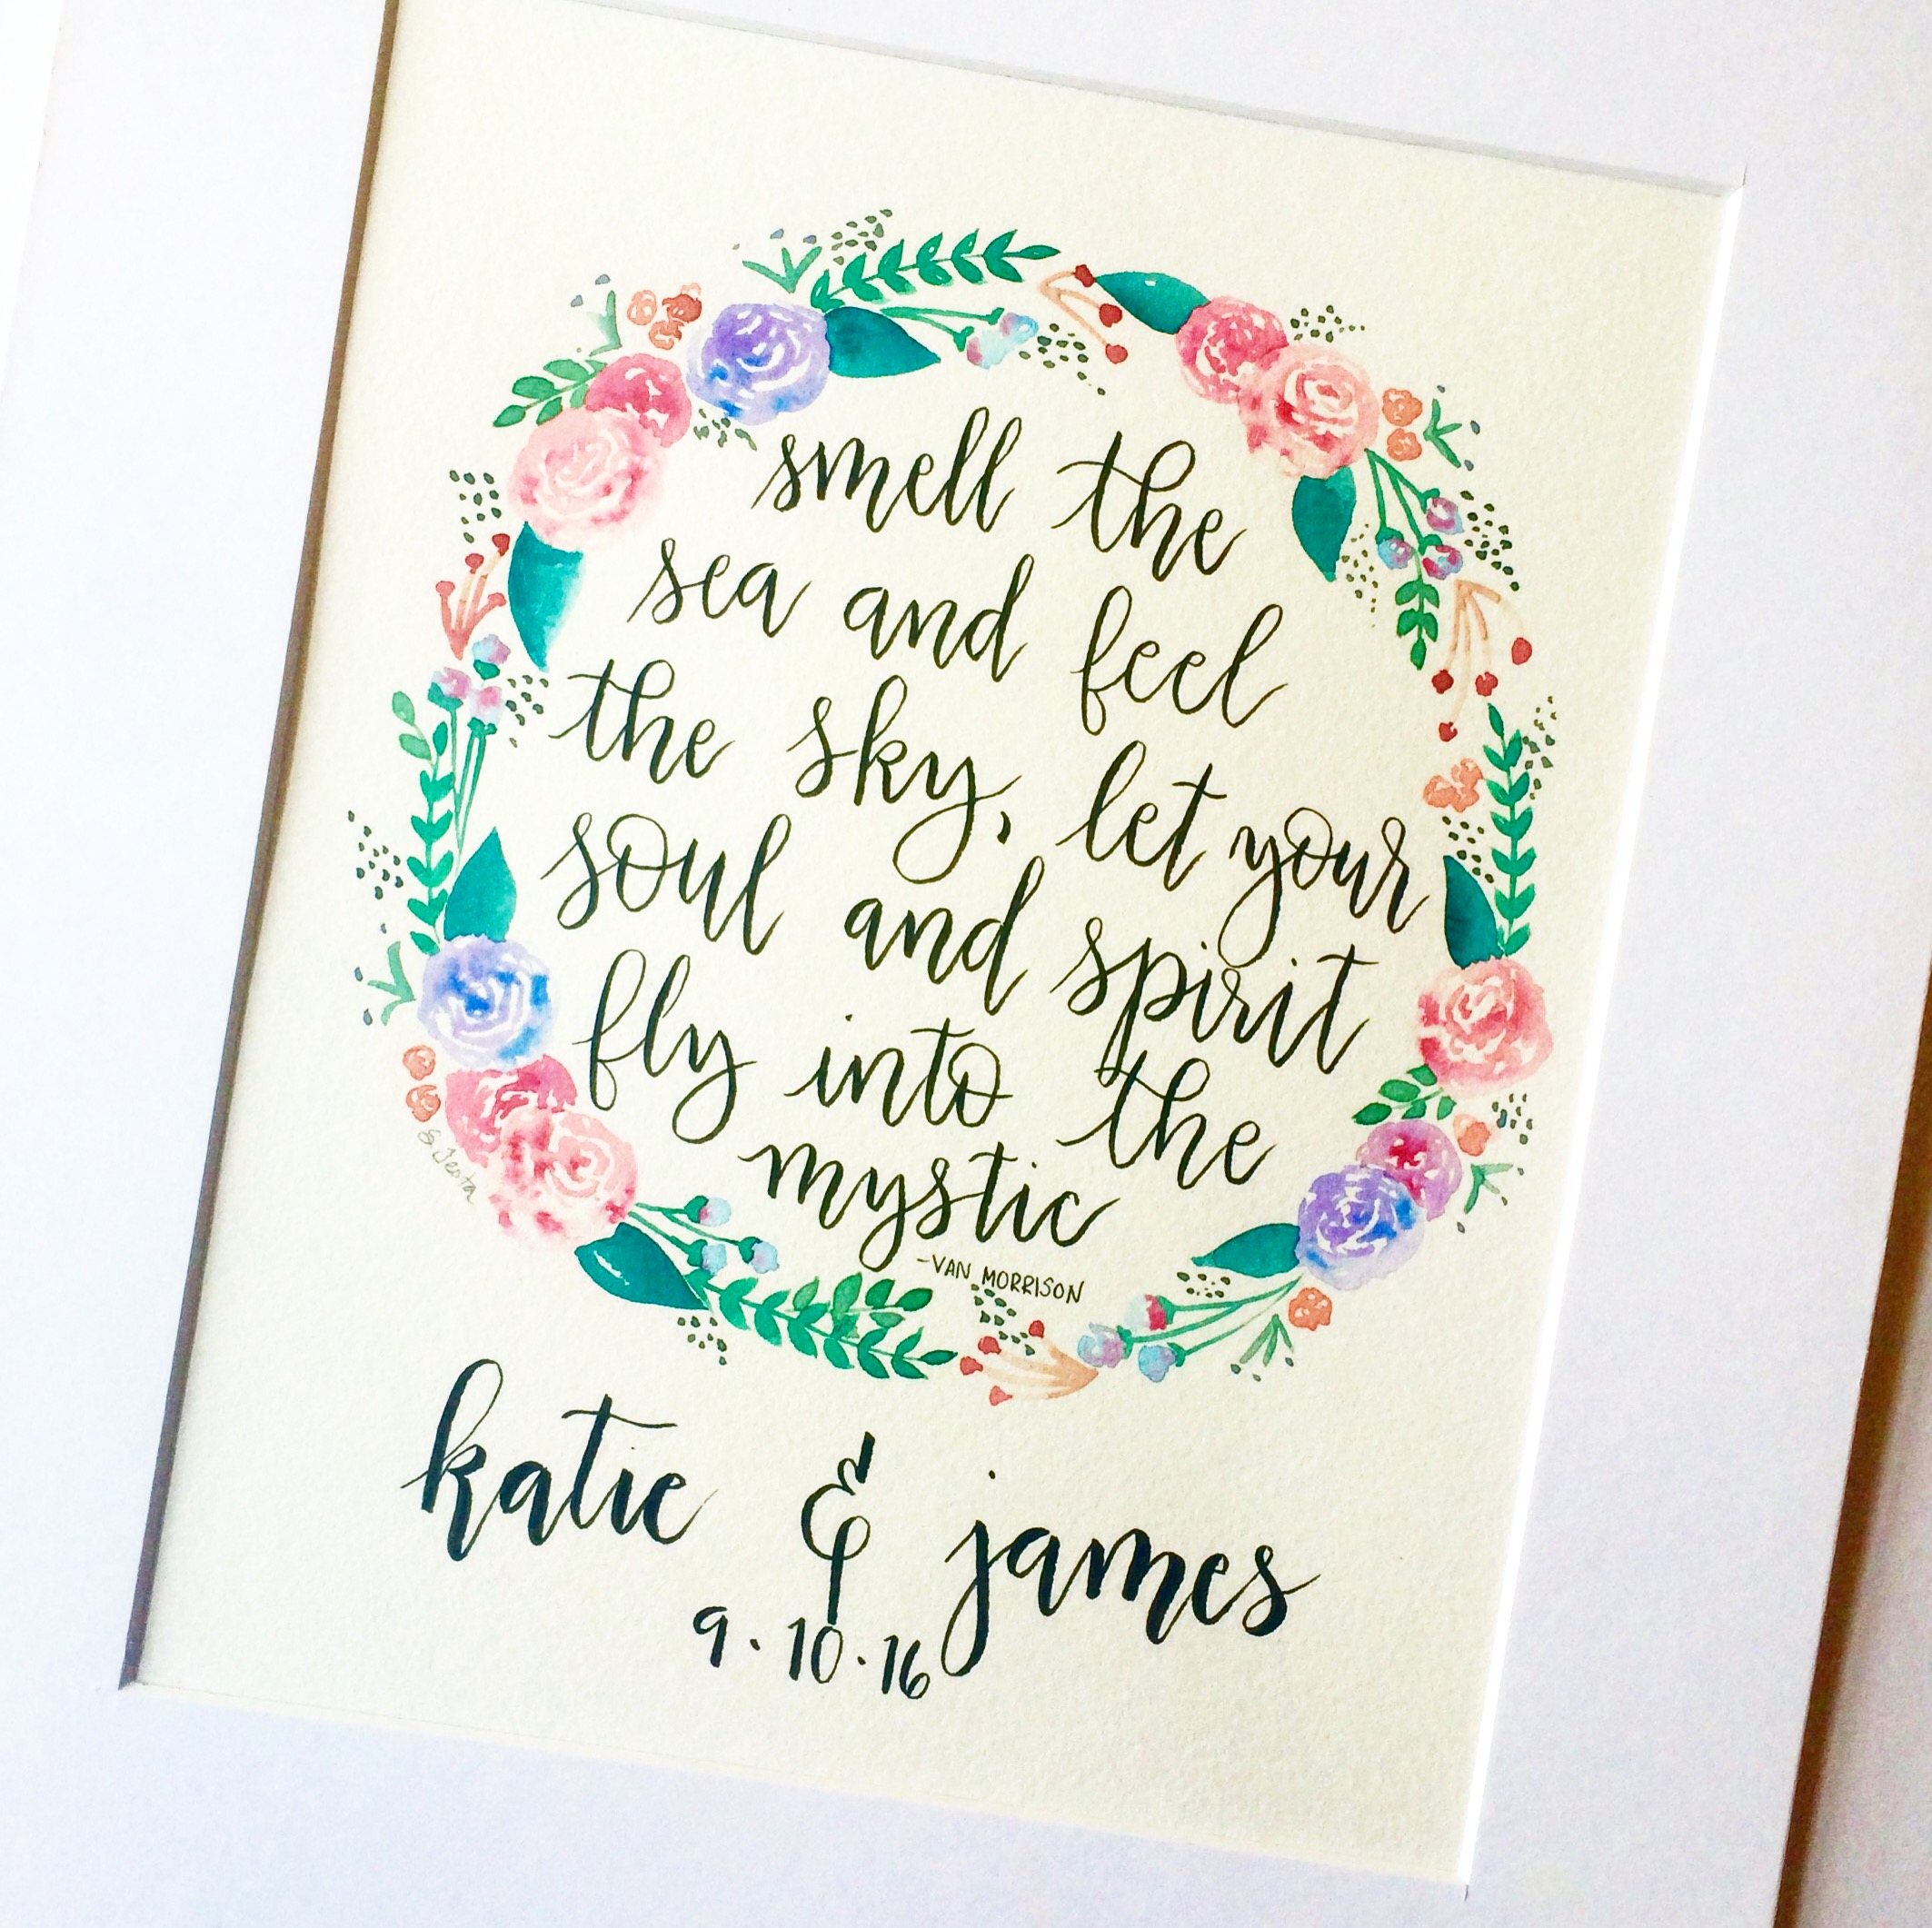 smell the
sea and feel
the sky, let your
soul and spirit
fly into the
mystic
-VAN MORRISON
S. Testa
katie & james
9.10.16